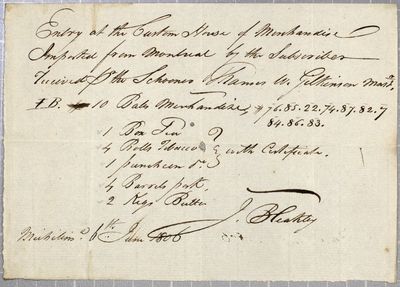 Entry at the Custom House of Merchandise
Imported from Montreal by the Subscriber
Received pr the Schooner Thames W. Gilkinson Mastr.
I.B. 10 Bales Merchandise, # 76.85.22.74.87.82.7
84.86.83.
1 Box Tea
4 Rolls Tobacco } with Certificate.
1 puncheon do
4 Barrels pork.
2 Kegs Butter
J. Bleakley
Michilimc. 6th June 1806